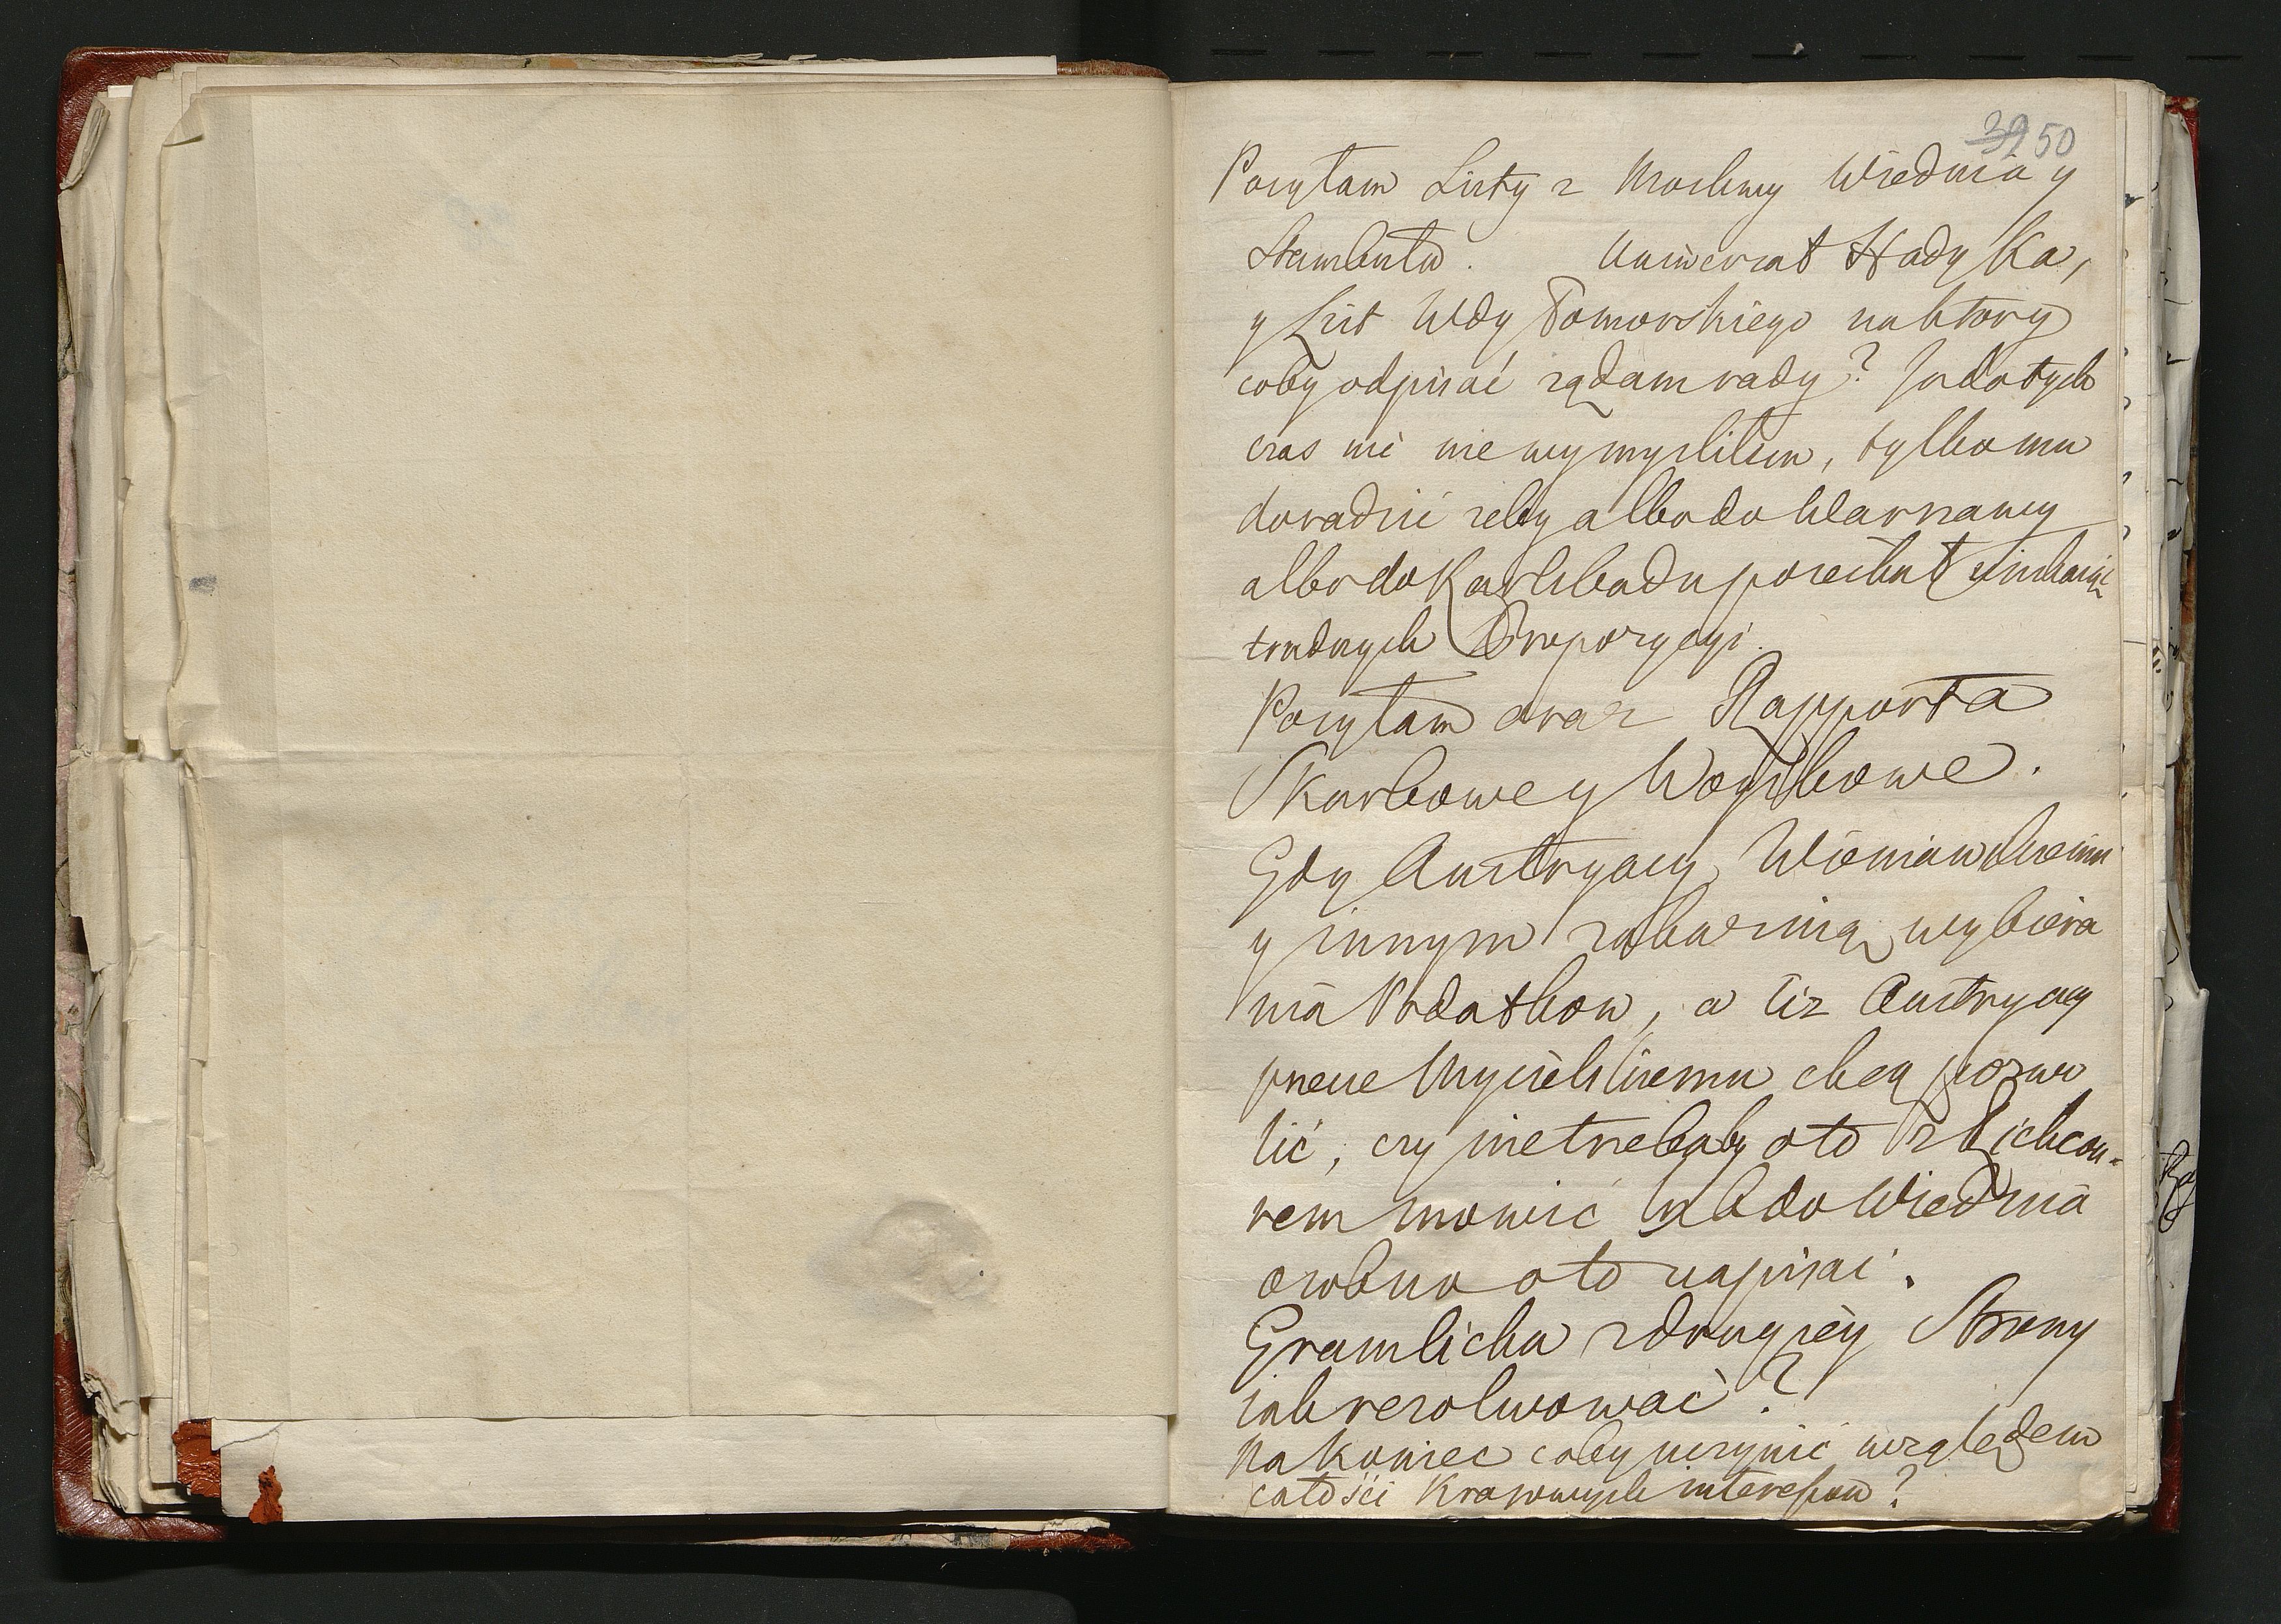 39 50
Posyłam Listy z Moskwy Wiednia y
Stambułu. Uniwersał Hadyka,
y List Wdy Pomorskiego na ktory
coby odpisać ządam rady? Ja dotych
czas nic nie wymysliłem, tylko mu
doradzić zeby albo do Warszawy
albo do Karlsbadu poiechał unikaiąc
trudnych Propozycyi.
Posyłam oraz Rapporta
Skarbowe y Woyskowe.
Gdy Austryacy Wieniawskiemu
y innym zakaznią wybiera
nia Podatkow, a liz Austryacy
przecie Mycielskiemu chcą pozwo
lić, czy nietrzebaby oto z Richcou-
rem mowić lub do Wiednia
osobno oto napisać.
Gramlicha zdrugiey Strony
iak rezolwować?
Nakoniec coby uczynić względem
całości Kraiowych interessow?